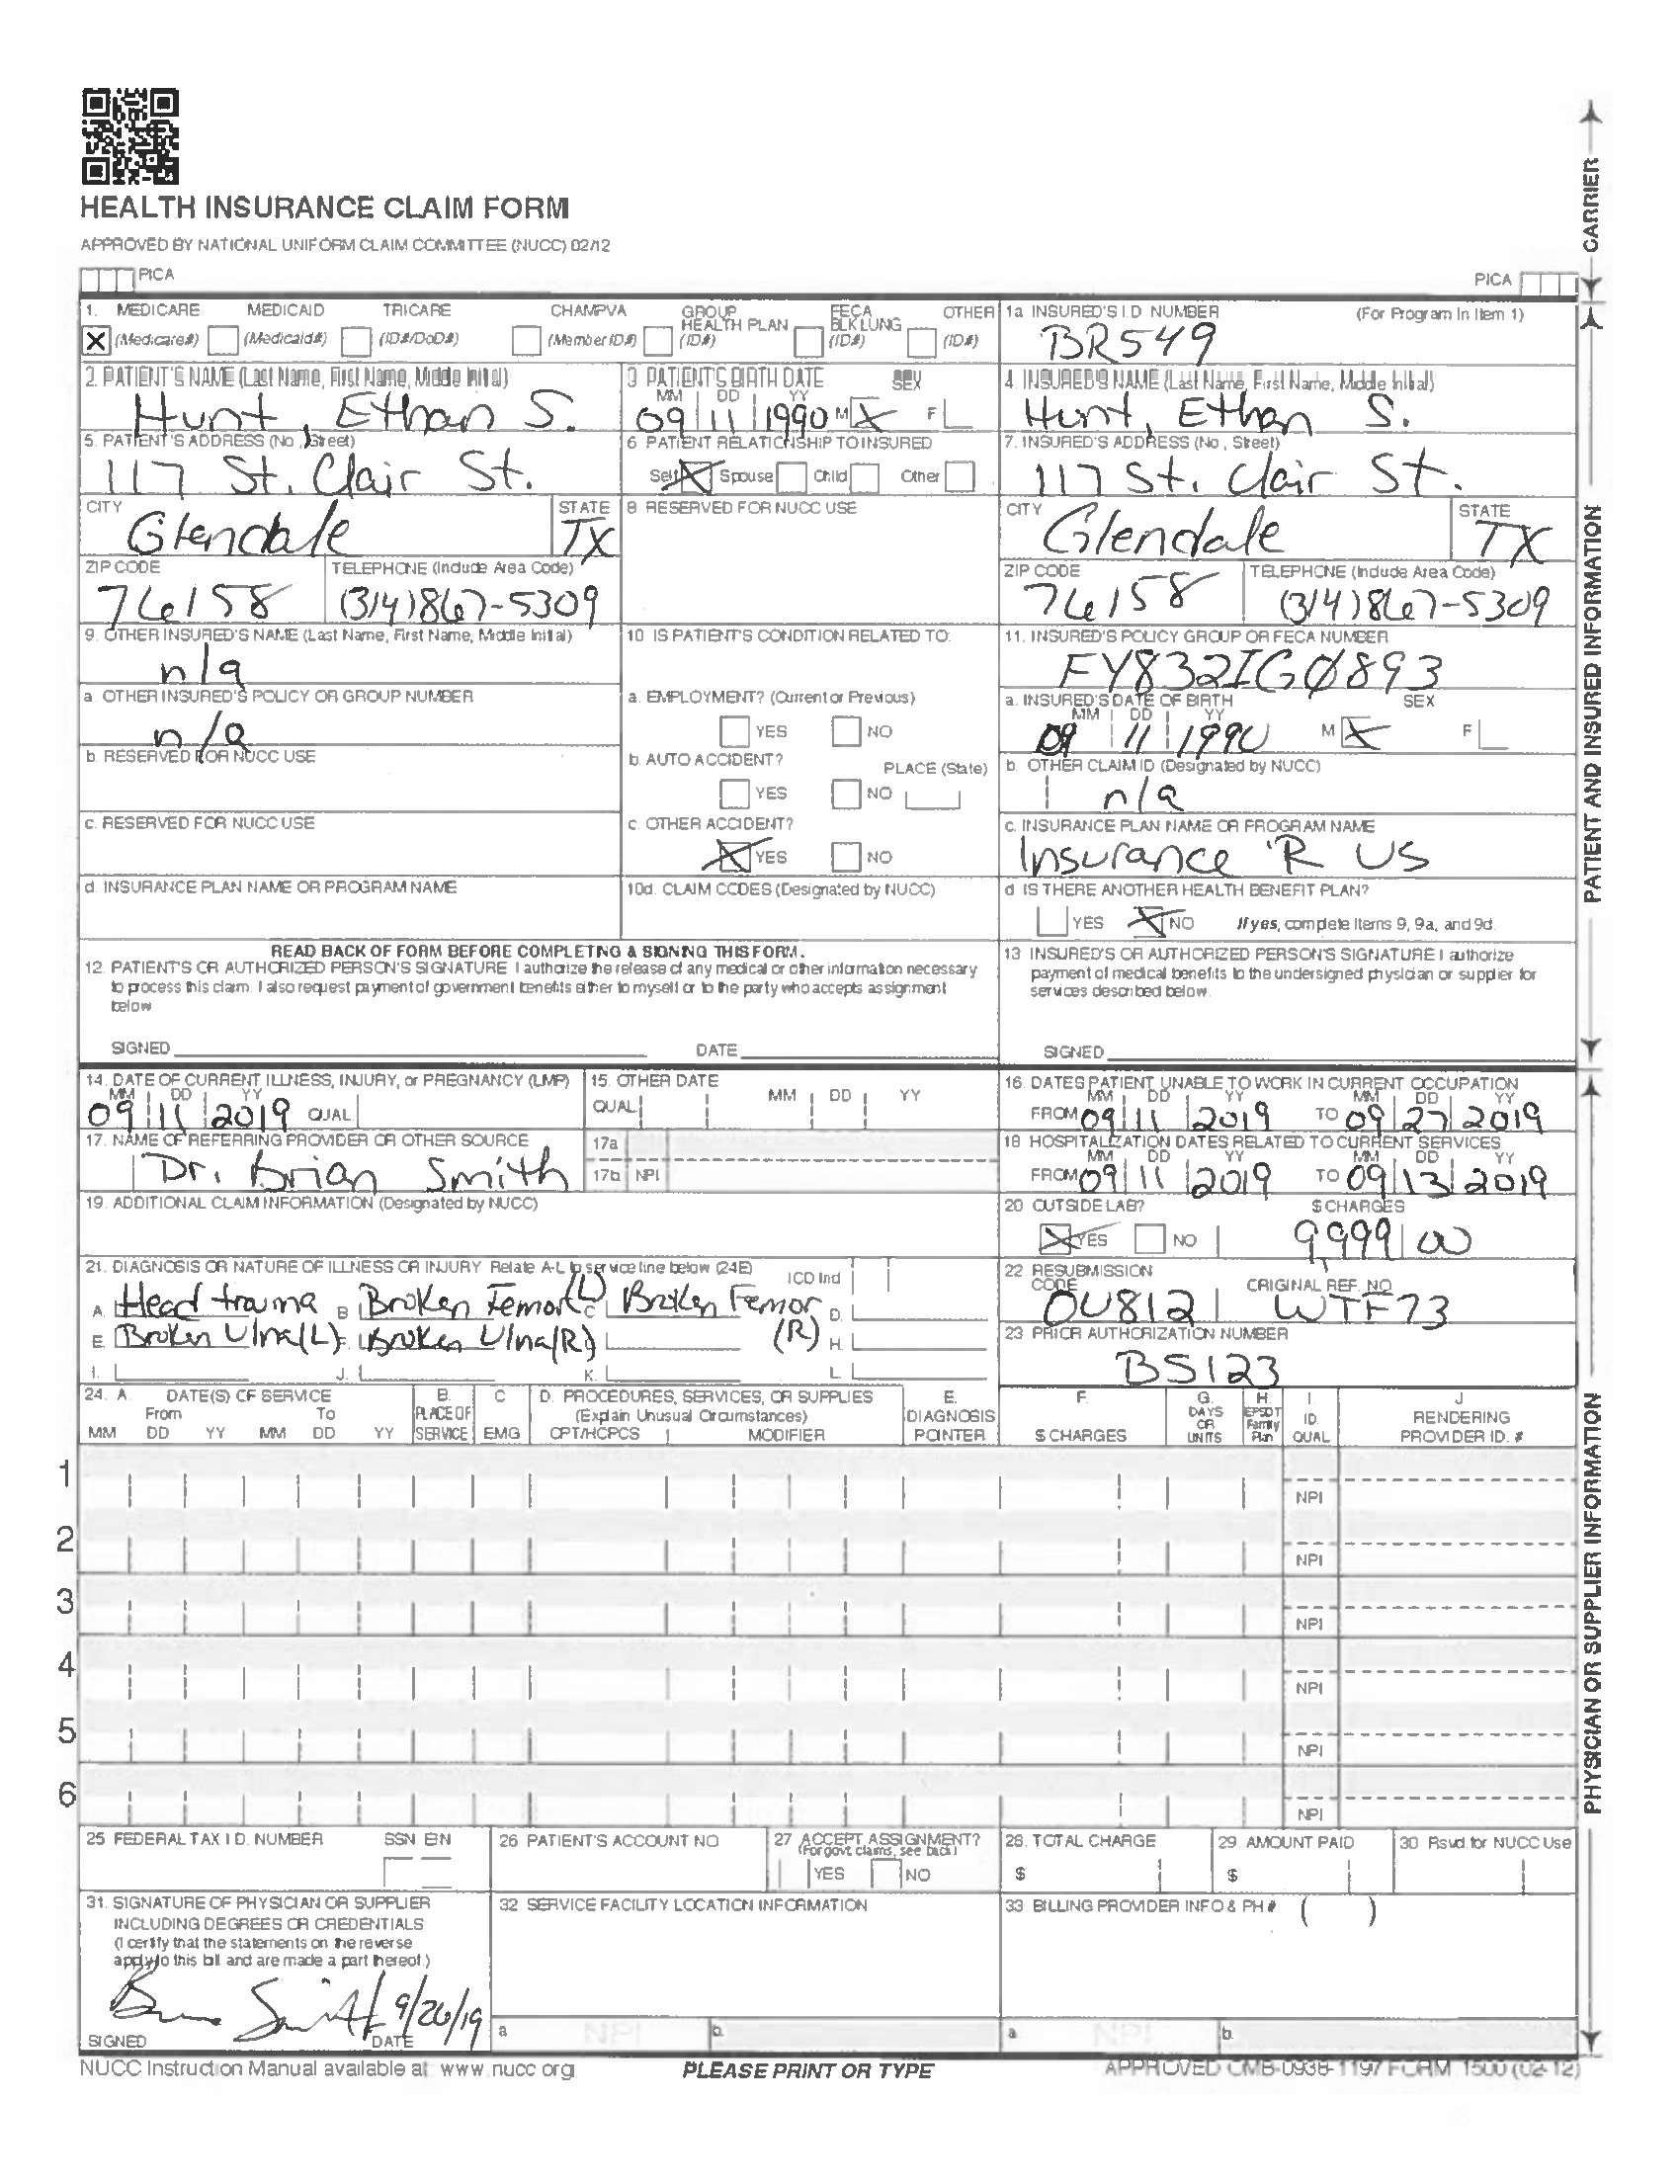 HEALTH INSURANCE CLAIM FORM
APPROVED BY NATIONAL UNIFORM CLAIM COMMITTEE (NUCC) 02/12
PICA
PICA
CARRIER
1. MEDICARE MEDICAID TRICARE CHAMPVA GROUP HEALTH PLAN FECA BLK LUNG OTHER
X (Medicare#) (Medicaid#) (ID#/DoD#) (Member ID#) (ID#) (ID#) (ID#)
1a INSURED'S I.D NUMBER (For Program In Item 1)
BR549
2. PATIENT'S NAME (Last Name, First Name, Middle Initial)
Hunt, Ethan S.
3 PATIENT'S BIRTH DATE SEX
MM DD YY
09 11 1990 M X F
4. INSURED'S NAME (Last Name, First Name, Middle Initial)
Hunt, Ethan S.
5. PATIENT'S ADDRESS (No., Street)
117 St. Clair St.
6 PATIENT RELATIONSHIP TO INSURED
Self X Spouse Child Other
7. INSURED'S ADDRESS (No., Street)
117 St. Clair St.
CITY STATE
Glendale TX
8 RESERVED FOR NUCC USE
CITY STATE
Glendale TX
ZIP CODE TELEPHONE (Include Area Code)
76158 (314)867-5309
ZIP CODE TELEPHONE (Include Area Code)
76158 (314)867-5309
9. OTHER INSURED'S NAME (Last Name, First Name, Middle Initial)
n/a
10 IS PATIENT'S CONDITION RELATED TO:
11. INSURED'S POLICY GROUP OR FECA NUMBER
FY832IGØ893
a. OTHER INSURED'S POLICY OR GROUP NUMBER
n/a
a. EMPLOYMENT? (Current or Previous)
YES NO
a. INSURED'S DATE OF BIRTH SEX
MM DD YY
09 11 1990 M X F
b. RESERVED FOR NUCC USE
b. AUTO ACCIDENT? PLACE (State)
YES NO
b. OTHER CLAIM ID (Designated by NUCC)
n/a
c. RESERVED FOR NUCC USE
c. OTHER ACCIDENT?
X YES NO
c. INSURANCE PLAN NAME OR PROGRAM NAME
Insurance 'R US
d. INSURANCE PLAN NAME OR PROGRAM NAME
10d. CLAIM CODES (Designated by NUCC)
d IS THERE ANOTHER HEALTH BENEFIT PLAN?
YES X NO If yes, complete Items 9, 9a, and 9d.
READ BACK OF FORM BEFORE COMPLETING & SIGNING THIS FORM.
12. PATIENT'S OR AUTHORIZED PERSON'S SIGNATURE I authorize the release of any medical or other information necessary
to process this claim. I also request payment of government benefits either to myself or to the party who accepts assignment
below
SIGNED DATE
13 INSURED'S OR AUTHORIZED PERSON'S SIGNATURE I authorize
payment of medical benefits to the undersigned physician or supplier for
services described below.
SIGNED
PATIENT AND INSURED INFORMATION
14. DATE OF CURRENT ILLNESS, INJURY, or PREGNANCY (LMP)
MM DD YY
09 11 2019 QUAL
15. OTHER DATE
QUAL MM DD YY
16. DATES PATIENT UNABLE TO WORK IN CURRENT OCCUPATION
MM DD YY MM DD YY
FROM 09 11 2019 TO 09 27 2019
17. NAME OF REFERRING PROVIDER OR OTHER SOURCE
Dr. Brian Smith
17a
17b NPI
18 HOSPITALIZATION DATES RELATED TO CURRENT SERVICES
MM DD YY MM DD YY
FROM 09 11 2019 TO 09 13 2019
19. ADDITIONAL CLAIM INFORMATION (Designated by NUCC)
20 OUTSIDE LAB? $ CHARGES
X YES NO 9999 00
21. DIAGNOSIS OR NATURE OF ILLNESS OR INJURY Relate A-L to service line below (24E) ICD Ind
A. Head trauma B. Broken Femor (L) C. Broken Femor (R) D.
E. Broken Ulna (L) F. Broken Ulna (R) H.
I. J. K. L.
22 RESUBMISSION CODE ORIGINAL REF. NO.
OU812 WTF73
23 PRIOR AUTHORIZATION NUMBER
BS123
24. A. DATE(S) OF SERVICE B. PLACE OF SERVICE C EMG D. PROCEDURES, SERVICES, OR SUPPLIES E. DIAGNOSIS POINTER F. $ CHARGES G. DAYS OR UNITS H. EPSDT Family Plan I. ID. QUAL J RENDERING PROVIDER ID. #
From To (Explain Unusual Circumstances)
MM DD YY MM DD YY CPT/HCPCS MODIFIER
1 NPI
2 NPI
3 NPI
4 NPI
5 NPI
6 NPI
PHYSICIAN OR SUPPLIER INFORMATION
25 FEDERAL TAX I.D. NUMBER SSN EIN
26 PATIENT'S ACCOUNT NO
27 ACCEPT ASSIGNMENT?
(For govt. claims, see back)
YES NO
28. TOTAL CHARGE
$
29. AMOUNT PAID
$
30 Rsvd. for NUCC Use
31. SIGNATURE OF PHYSICIAN OR SUPPLIER
INCLUDING DEGREES OR CREDENTIALS
(I certify that the statements on the reverse
apply to this bill and are made a part thereof.)
Brian Smith 9/20/19
SIGNED DATE
32 SERVICE FACILITY LOCATION INFORMATION
a. NPI b.
33. BILLING PROVIDER INFO & PH # ( )
a. NPI b.
NUCC Instruction Manual available at: www.nucc.org
PLEASE PRINT OR TYPE
APPROVED OMB-0938-1197 FORM 1500 (02-12)